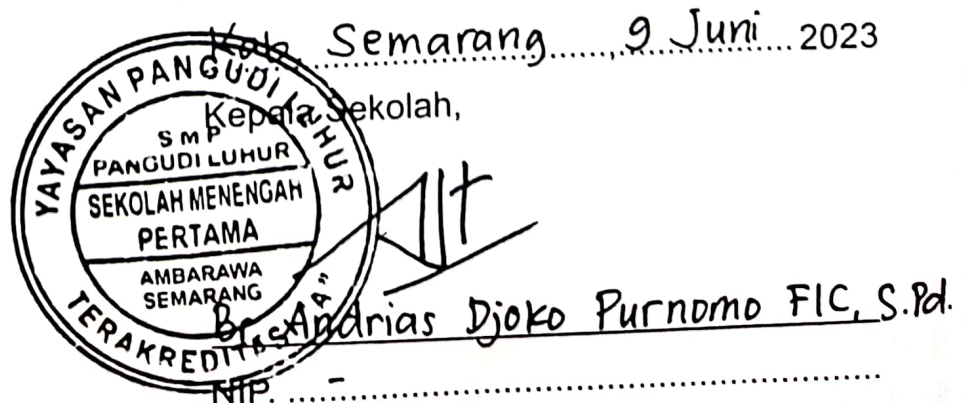 Kab. Semarang......, 9 Juni .... 2023
Kepala Sekolah,
YAYASAN PANGUDI LUHUR
SMP
PANGUDI LUHUR
SEKOLAH MENENGAH
PERTAMA
AMBARAWA
SEMARANG
TERAKREDITASI "A"
Br. Andrias Djoko Purnomo FIC, S.Pd.
NIP. -